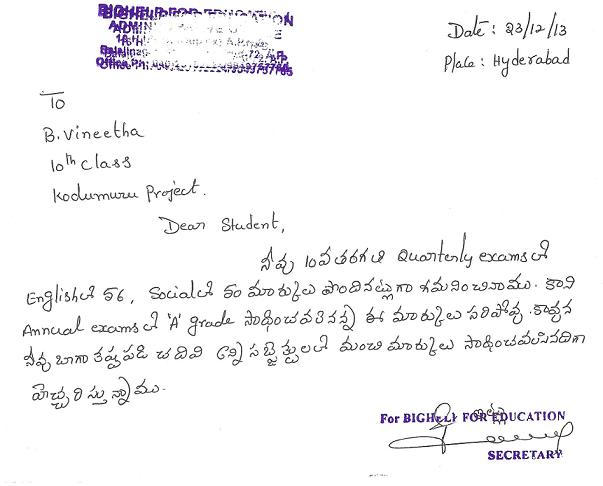 BIGHELP FOR EDUCATION
Date: 23/12/13
Place: Hyderabad
To
B. Vineetha
10th Class
Kodumuru Project.
Dear Student,
నీవు 10వ తరగతి Quarterly examsలో
Englishలో 56, Socialలో 50 మార్కులు పొందినట్లుగా గమనించినాము. కాని
Annual examsలో 'A' grade సాధించవలెనన్న ఈ మార్కులు సరిపోవు. కావున
నీవు బాగా కష్టపడి చదివి అన్ని సబ్జెక్టులలో మంచి మార్కులు సాధించవలసినదిగా
హెచ్చరిస్తున్నాము.
ఇట్లు
For BIGHELP FOR EDUCATION
SECRETARY